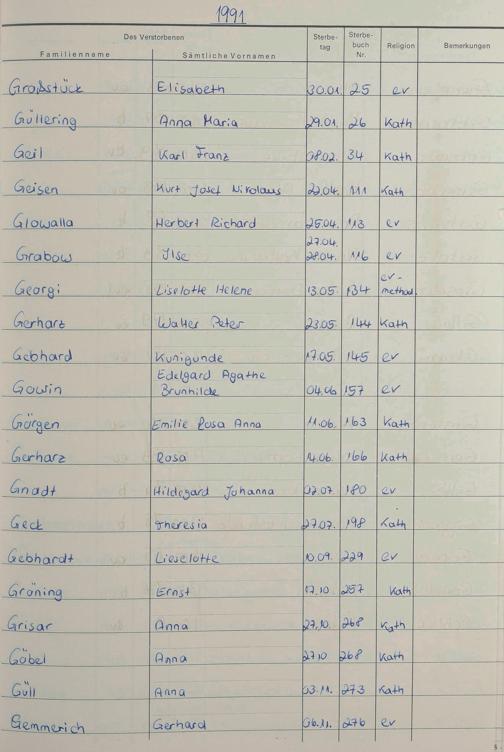 1991
Des Verstorbenen Sterbe- tag Sterbe- buch Nr. Religion Bemerkungen
Familienname Sämtliche Vornamen
Großstück Elisabeth 30.01. 25 ev
Güllering Anna Maria 29.01. 26 Kath
Geil Karl Franz 08.02. 34 Kath
Geisen Kurt Josef Nikolaus 22.04. 111 Kath
Glowalla Herbert Richard 25.04. 113 ev
Grabow Ilse 27.04. 28.04. 116 ev
Georgi Liselotte Helene 13.05. 134 ev.- method.
Gerharz Walter Peter 23.05. 144 Kath
Gebhard Kunigunde 17.05. 145 ev
Gowin Edelgard Agathe Brunhilde 04.06 157 ev
Görgen Emilie Rosa Anna 11.06. 163 Kath
Gerharz Rosa 14.06. 166 Kath
Gnadt Hildegard Johanna 02.07. 180 ev
Geck Theresia 27.07. 198 Kath
Gebhardt Lieselotte 10.09. 229 ev
Gröning Ernst 17.10. 257 Kath
Grisar Anna 27.10. 268 Kath
Göbel Anna 27.10 268 Kath
Güll Anna 03.11. 273 Kath
Gemmerich Gerhard 06.11. 276 ev